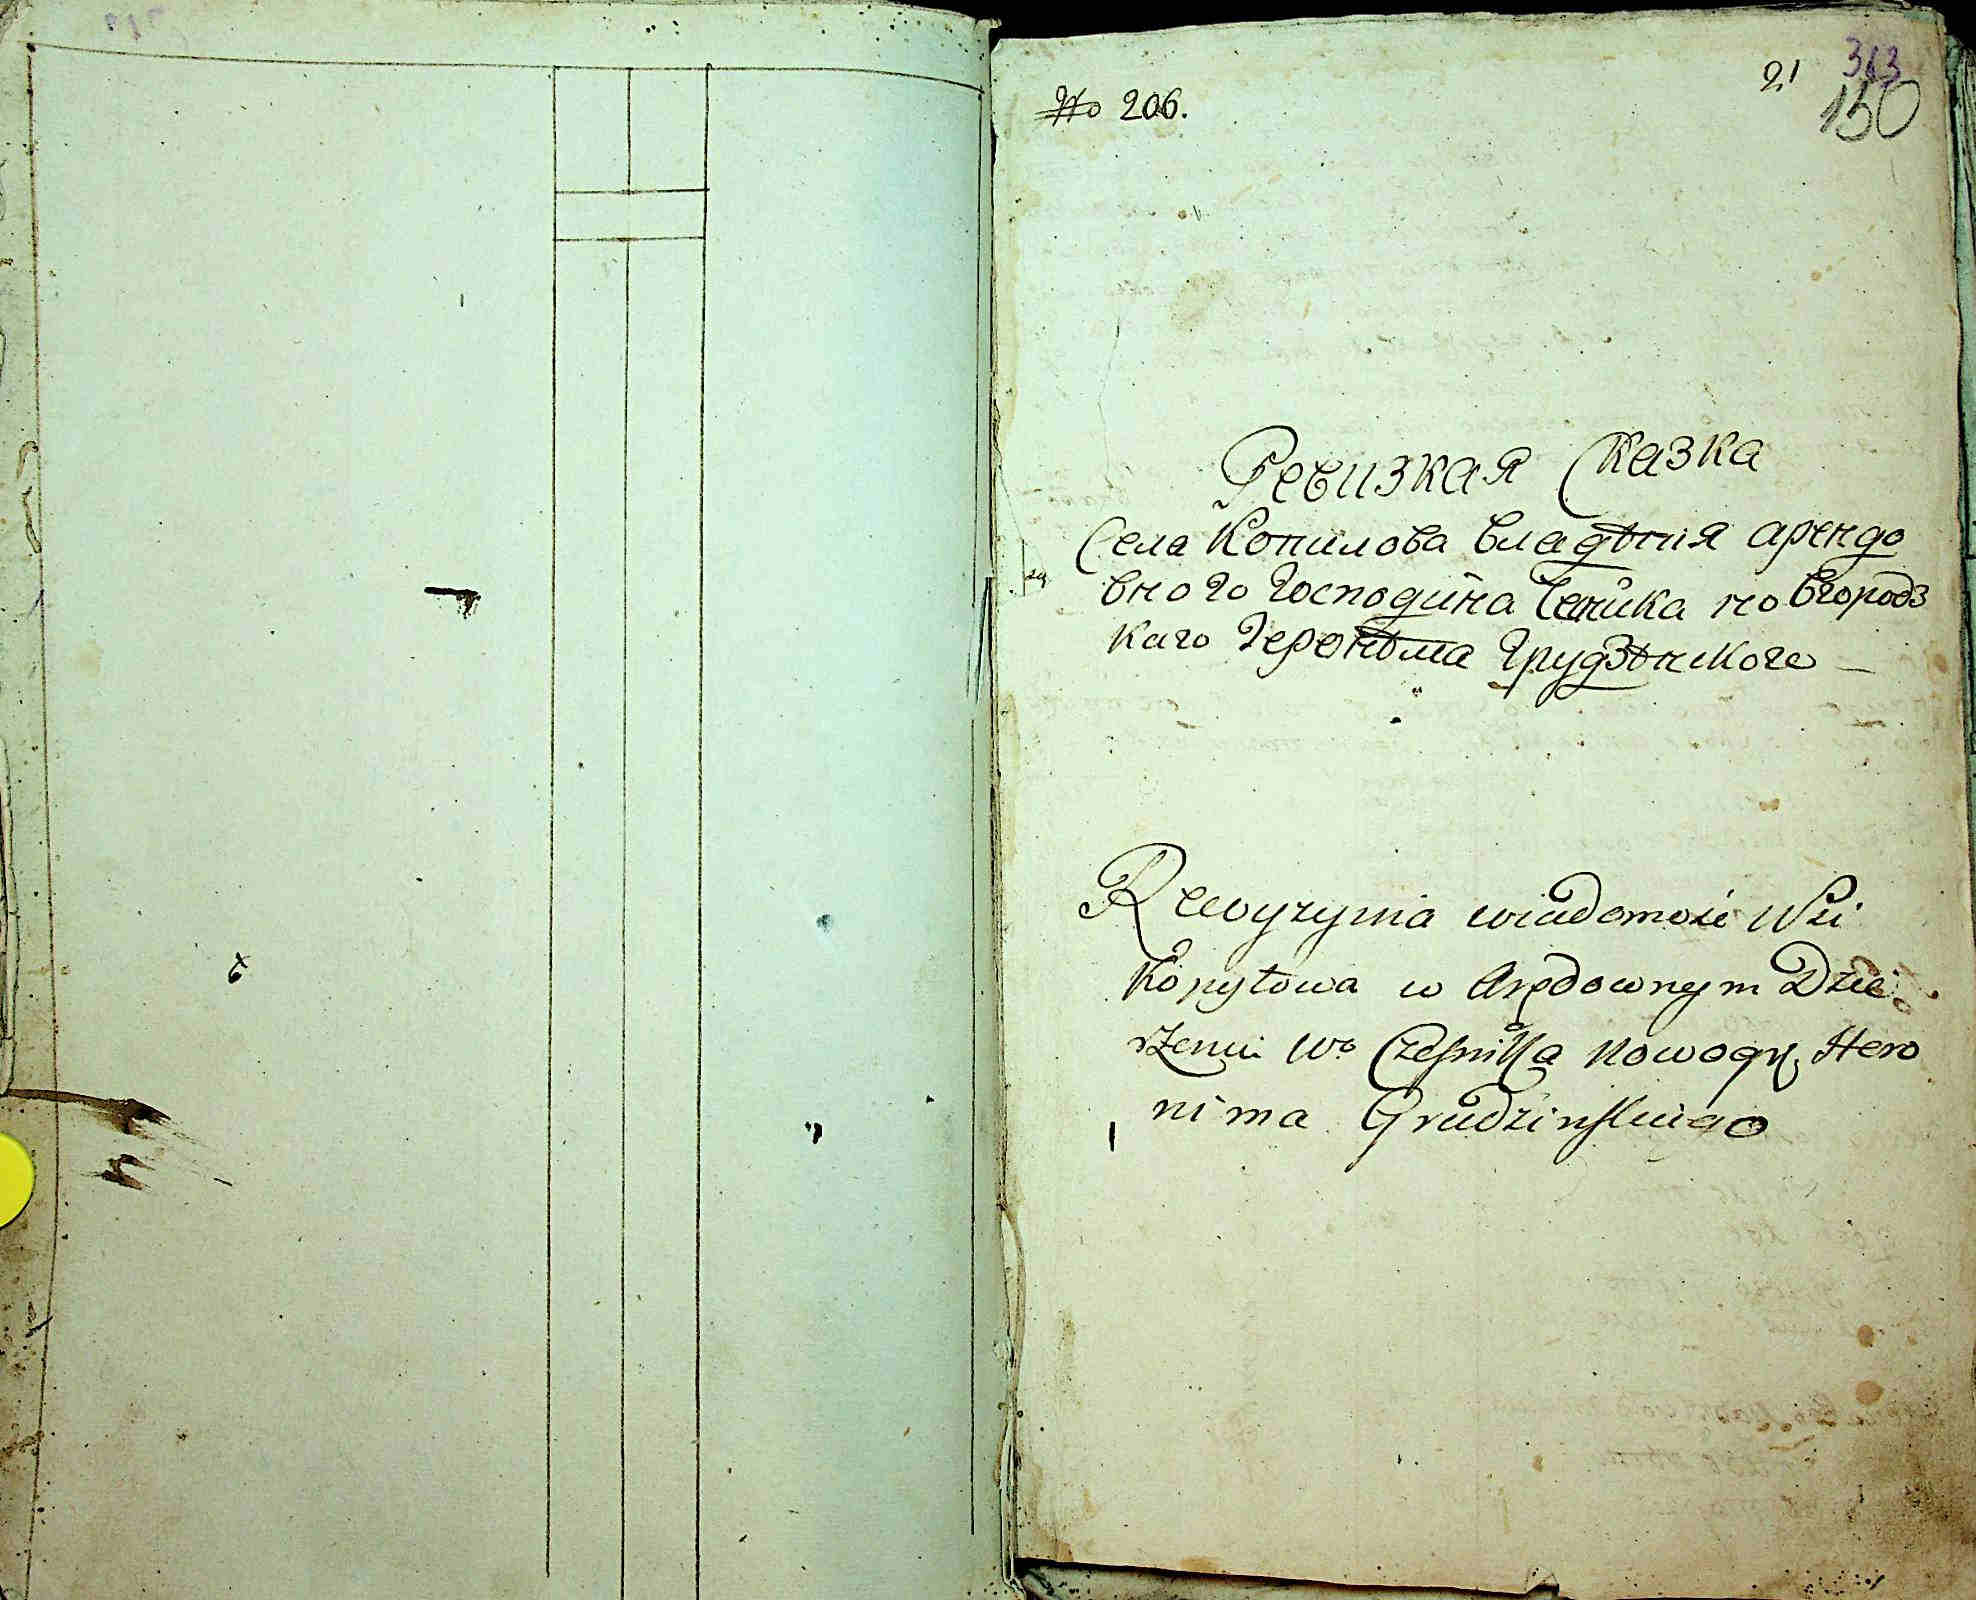 № 206.
21
313
150
Ревизкая Сказка
Села Копилова владѣния арендо
вного Господина Чесника новгородз
каго Геронѣма Грудзѣнского
Rewyzyina wiadomość Wsi
Kopyłowa w Arędownym Dzie
rżeniu Wo Czesnika Nowogr. Hero
nima Grudzinskiego